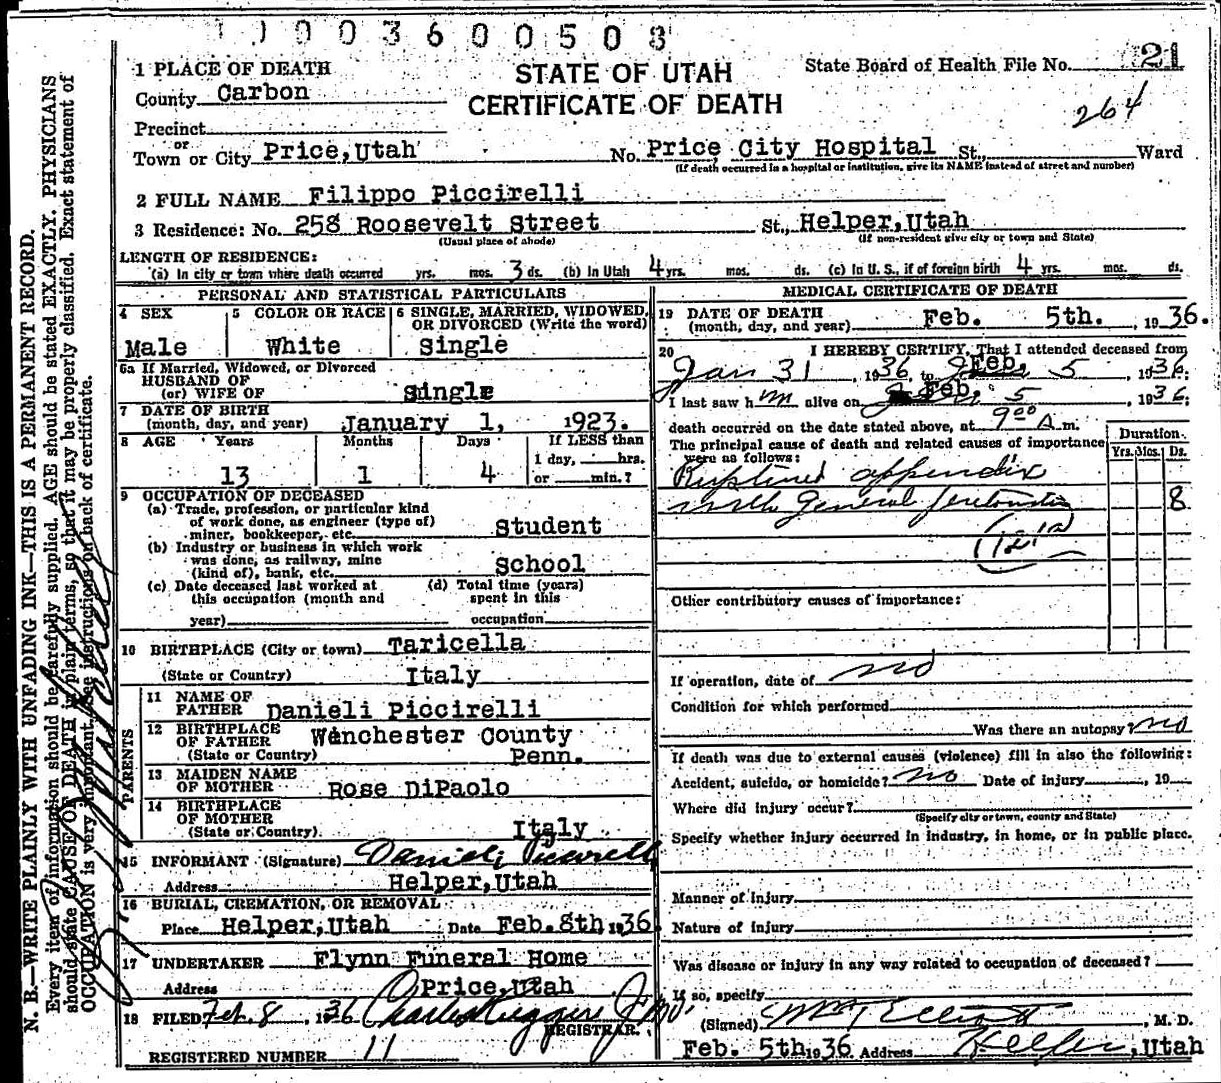 1 0 0 3 6 0 0 5 0 8
1 PLACE OF DEATH
STATE OF UTAH
CERTIFICATE OF DEATH
State Board of Health File No. 21
264
County Carbon
Precinct
or
Town or City Price, Utah No. Price City Hospital St., Ward
(If death occurred in a hospital or institution, give its NAME instead of street and number)
2 FULL NAME Filippo Piccirelli
3 Residence: No. 258 Roosevelt Street St., Helper, Utah
(Usual place of abode) (If non-resident give city or town and State)
LENGTH OF RESIDENCE:
(a) In city or town where death occurred yrs. mos. 3 ds. (b) In Utah 4 yrs. mos. ds. (c) In U. S., if of foreign birth 4 yrs. mos. ds.
PERSONAL AND STATISTICAL PARTICULARS
4 SEX
Male
5 COLOR OR RACE
White
6 SINGLE, MARRIED, WIDOWED,
OR DIVORCED (Write the word)
Single
6a If Married, Widowed, or Divorced
HUSBAND OF
(or) WIFE OF Single
7 DATE OF BIRTH
(month, day, and year) January 1, 1923.
8 AGE Years Months Days If LESS than
1 day, hrs.
13 1 4 or min.?
9 OCCUPATION OF DECEASED
(a) Trade, profession, or particular kind
of work done, as engineer (type of)
miner, bookkeeper, etc. Student
(b) Industry or business in which work
was done, as railway, mine
(kind of), bank, etc. School
(c) Date deceased last worked at
this occupation (month and
year)
(d) Total time (years)
spent in this
occupation
10 BIRTHPLACE (City or town) Taricella
(State or Country) Italy
PARENTS
11 NAME OF
FATHER Danieli Piccirelli
12 BIRTHPLACE
OF FATHER Winchester County
(State or Country) Penn.
13 MAIDEN NAME
OF MOTHER Rose DiPaolo
14 BIRTHPLACE
OF MOTHER
(State or Country) Italy
15 INFORMANT (Signature) Danieli Piccirelli
Address Helper, Utah
16 BURIAL, CREMATION, OR REMOVAL
Place Helper, Utah Date Feb. 8th 1936
17 UNDERTAKER Flynn Funeral Home
Address Price, Utah
18 FILED Feb. 8, 1936 Charles Ruggeri Jr MD.
REGISTRAR.
REGISTERED NUMBER 11
MEDICAL CERTIFICATE OF DEATH
19 DATE OF DEATH
(month, day, and year) Feb. 5th. , 1936.
20 I HEREBY CERTIFY, That I attended deceased from
Jan 31 , 1936, to Feb. 5 , 1936;
I last saw h m alive on Feb. 5 , 1936;
death occurred on the date stated above, at 9 00 A m.
The principal cause of death and related causes of importance
were as follows:
Duration
Yrs. Mos. Ds.
Ruptured appendix
with general peritonitis 8
(121a)
Other contributory causes of importance:
If operation, date of no
Condition for which performed
Was there an autopsy? no
If death was due to external causes (violence) fill in also the following:
Accident, suicide, or homicide? no Date of injury , 19
Where did injury occur?
(Specify city or town, county and State)
Specify whether injury occurred in industry, in home, or in public place.
Manner of Injury
Nature of Injury
Was disease or injury in any way related to occupation of deceased?
If so, specify
(Signed) Elliott , M. D.
Feb. 5th 1936 Address Helper, Utah
N. B.—WRITE PLAINLY WITH UNFADING INK—THIS IS A PERMANENT RECORD.
Every item of information should be carefully supplied. AGE should be stated EXACTLY. PHYSICIANS
should state CAUSE OF DEATH in plain terms, so that it may be properly classified. Exact statement of
OCCUPATION is very important. See instructions on back of certificate.